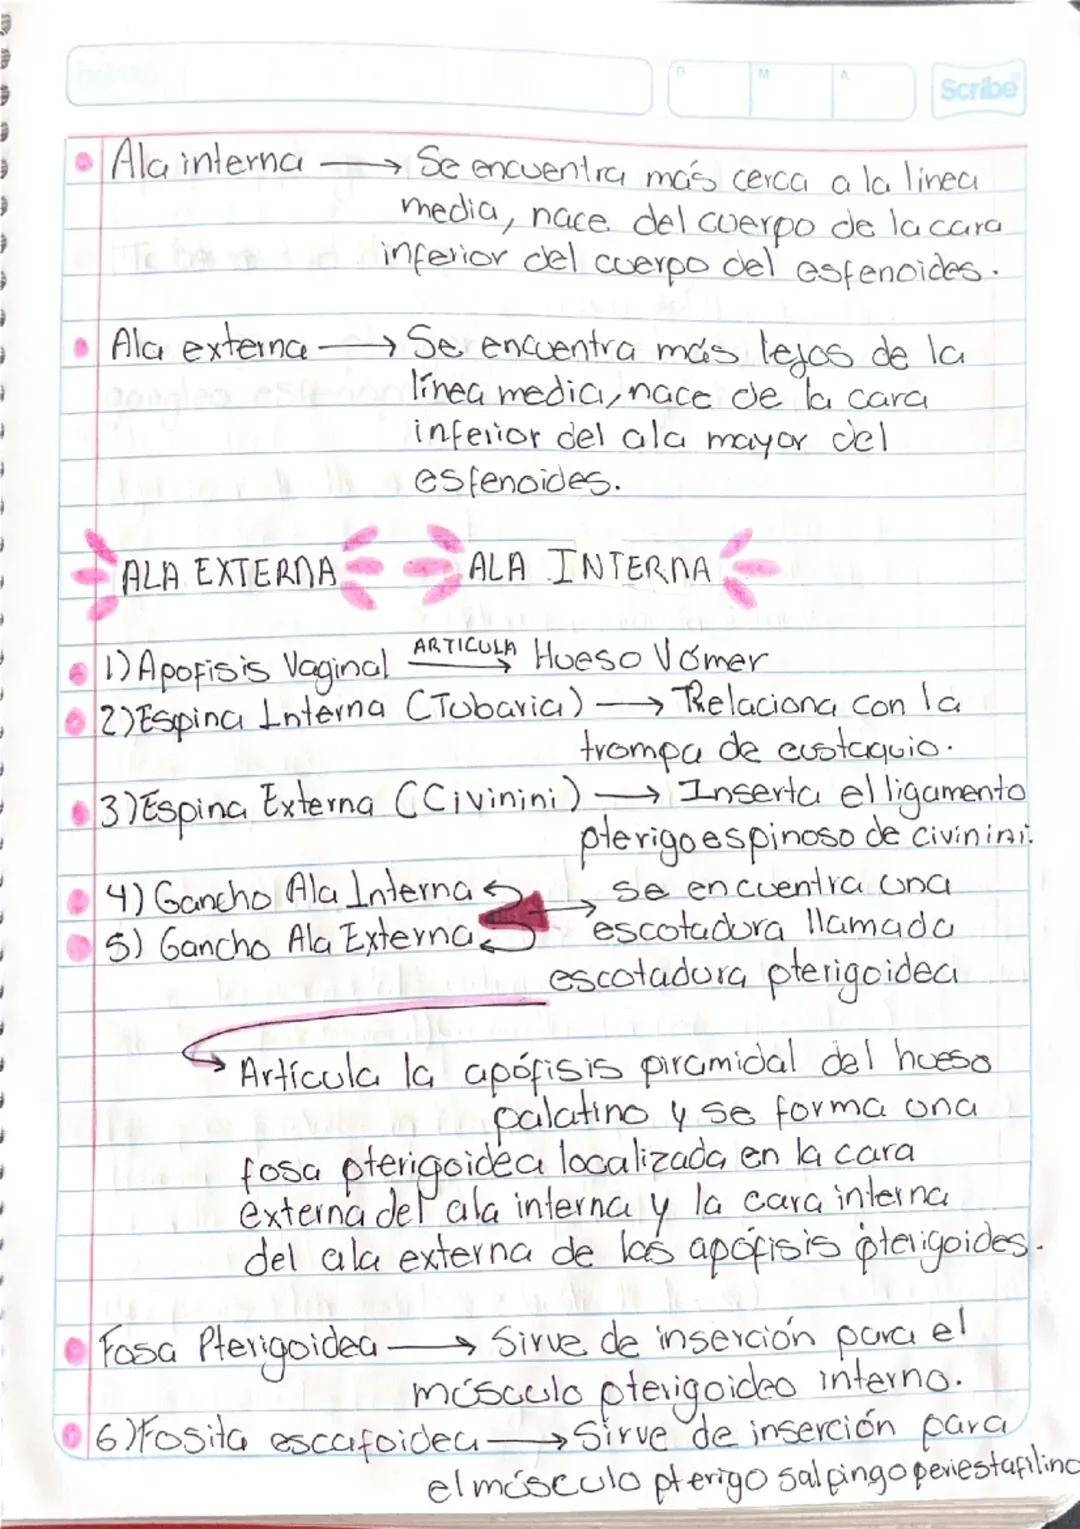 D M A Scribe
Ala interna → Se encuentra más cerca a la linea
media, nace del cuerpo de la cara
inferior del cuerpo del esfenoides.
Ala externa → Se encuentra más lejos de la
línea media, nace de la cara
inferior del ala mayor del
esfenoides.
ALA EXTERNA ALA INTERNA
1) Apofisis Vaginal ARTICULA → Hueso Vómer
2) Espina Interna (Tubaria) → Relaciona con la
trompa de eustaquio.
3) Espina Externa (Civinini) → Inserta el ligamento
pterigoespinoso de civinini.
4) Gancho Ala Interna → se encuentra una
5) Gancho Ala Externa escotadura llamada
escotadura pterigoidea
→ Artícula la apófisis piramidal del hueso
palatino y se forma una
fosa pterigoidea localizada en la cara
externa del ala interna y la cara interna
del ala externa de las apófisis pterigoides.
Fosa Pterigoidea → Sirve de inserción para el
músculo pterigoideo interno.
6) Fosita escafoidea → Sirve de inserción para
el músculo pterigo salpingo periestafilino